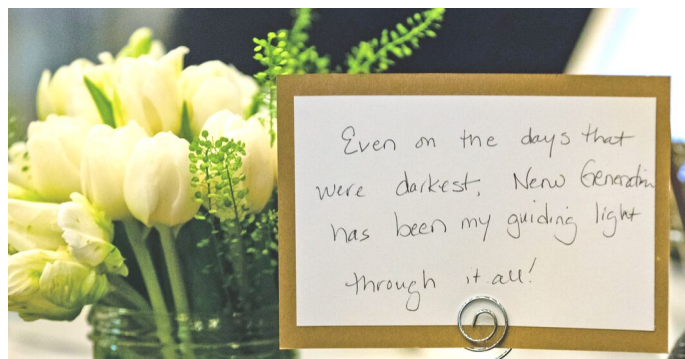 Even on the days that
were darkest, New Generation
has been my guiding light
through it all!